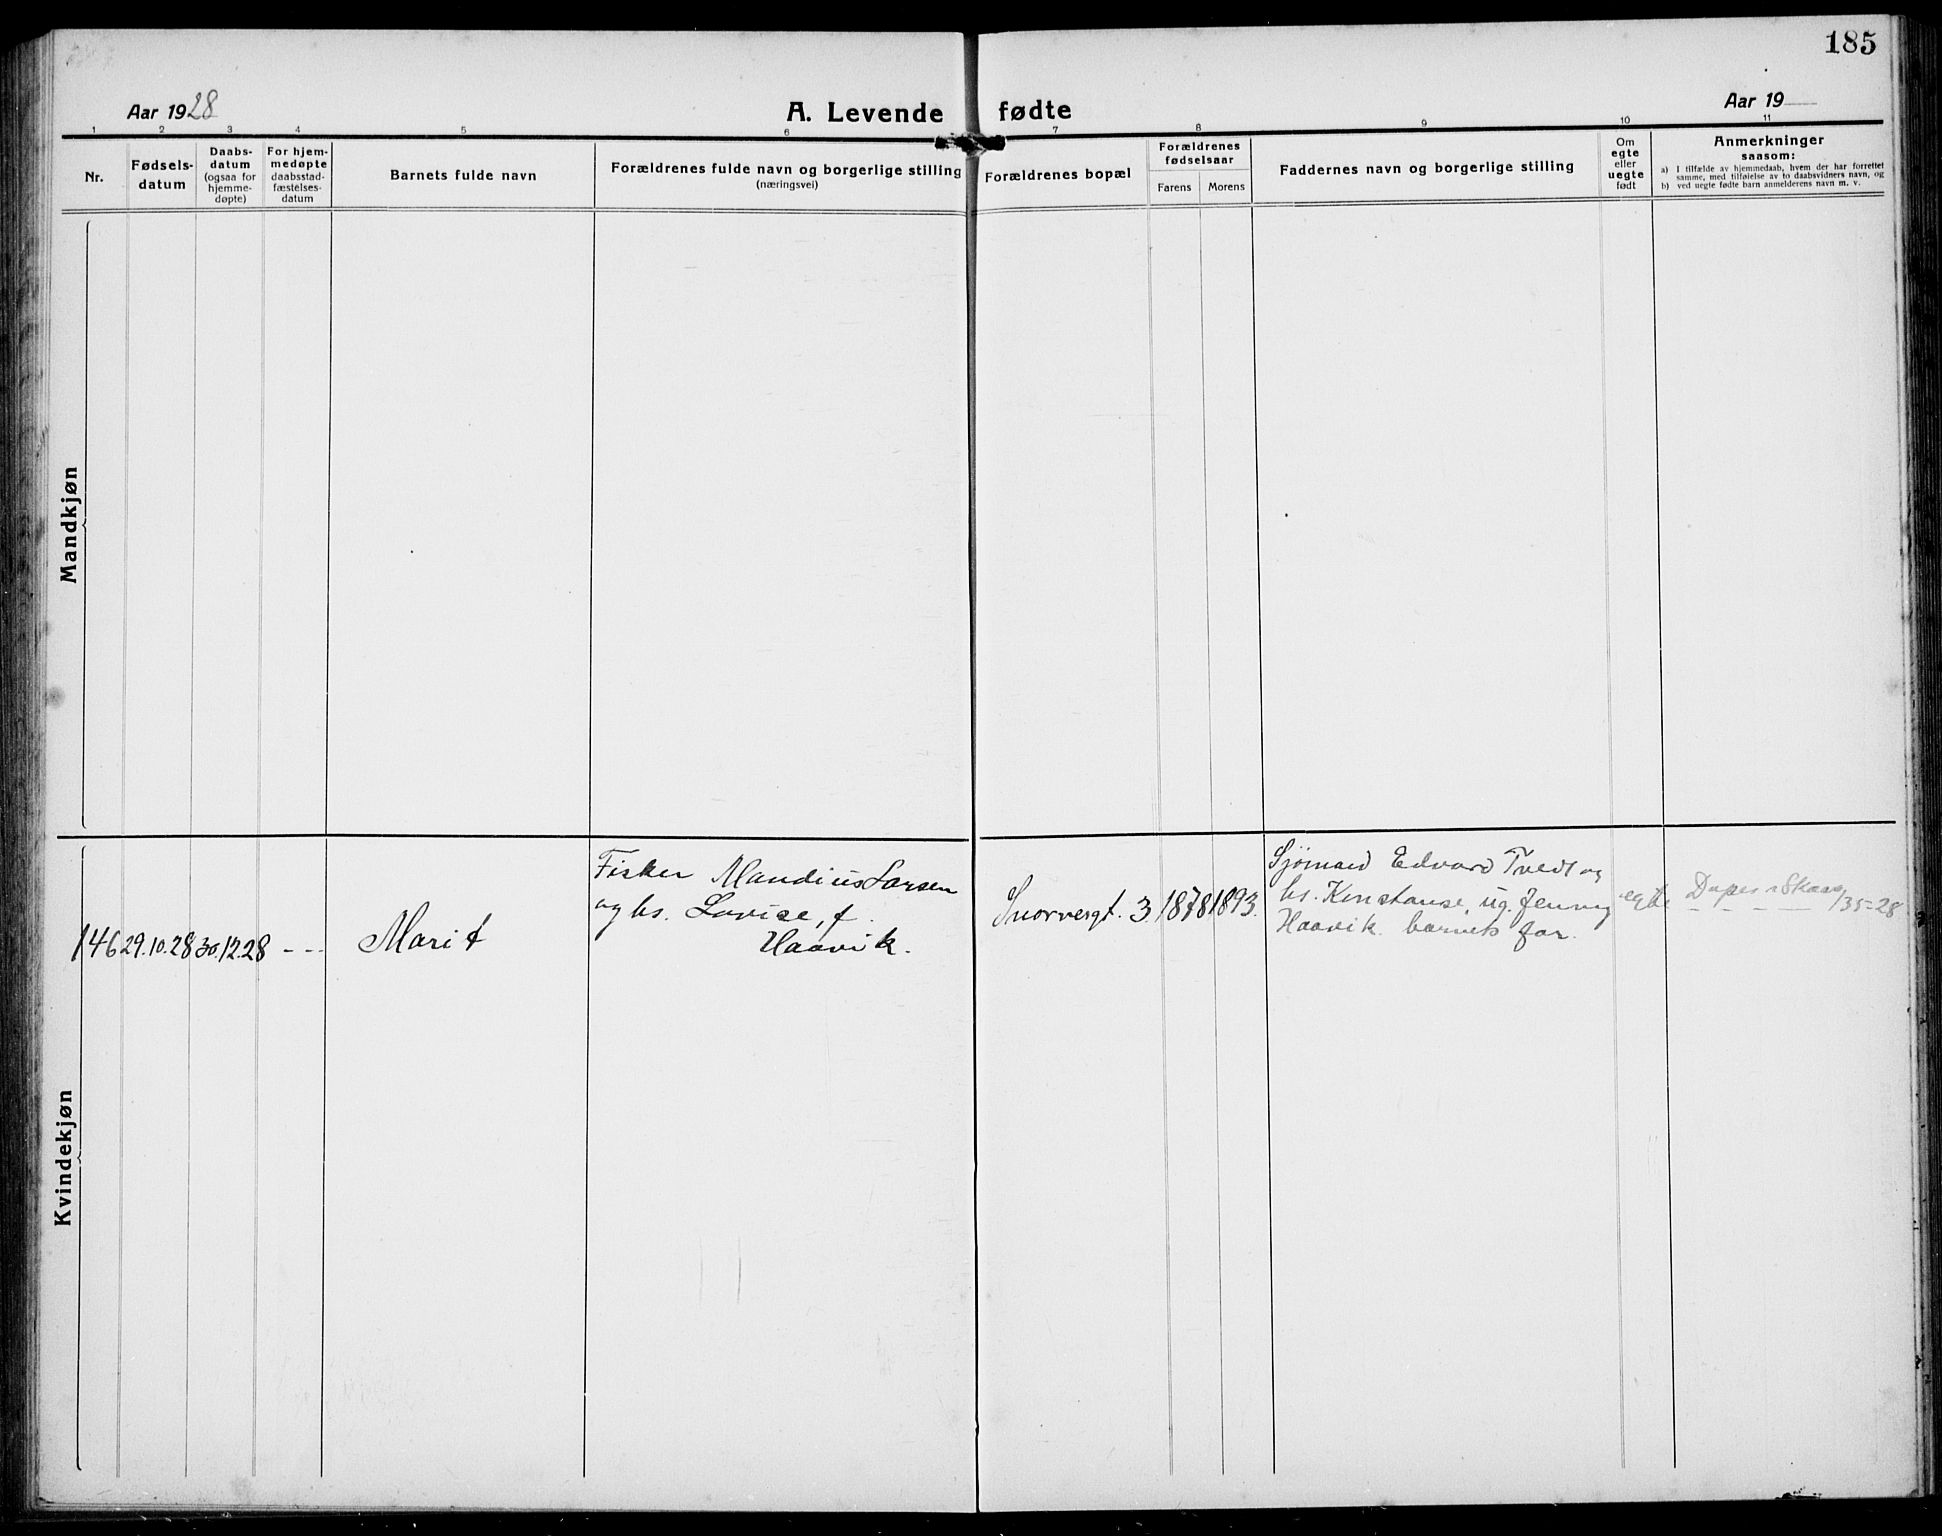 185
Aar 1928
A. Levende fødte
Aar 19
1 2 3 4 5 6 7 8 9 10 11
Nr.
Fødsels-
datum
Daabs-
datum
(ogsaa for
hjemme-
døpte)
For hjem-
medøpte
daabsstad-
fæstelses-
datum
Barnets fulde navn
Forældrenes fulde navn og borgerlige stilling
(næringsvei)
Forældrenes bopæl
Forældrenes
fødselsaar
Farens
Morens
Faddernes navn og borgerlige stilling
Om
egte
eller
uegte
født
Anmerkninger
saasom:
a) I tilfælde av hjemmedaab, hvem der har forrettet
samme, med tilføielse av to daabsvidners navn, og
b) ved uegte fødte barn anmelderens navn m. v.
Mandkjøn
Kvindekjøn
146
29.10.28
30.12.28
- - -
Marit
Fisker Mandius Larsen
og hs. Lovise, f.
Haavik.
3
1878
1893.
Sjömand Edvard Tvedt og
hs. Konstanse, ug. Jenny
Haavik. barnets far.
egte
135-28